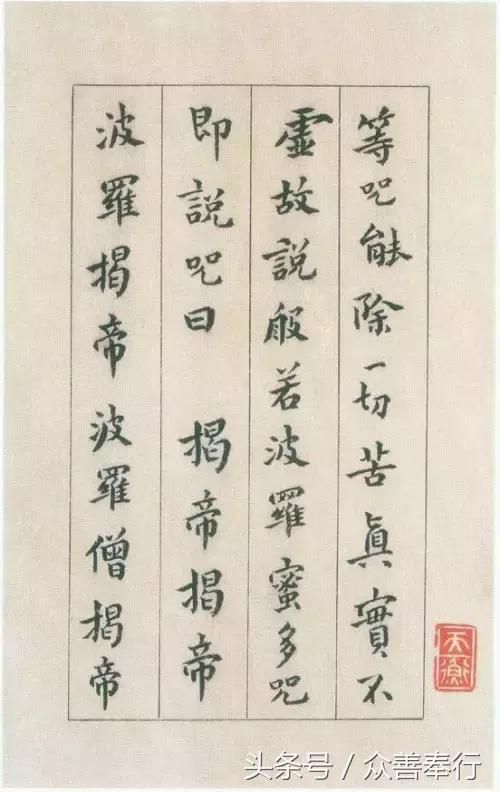 等咒能除一切苦真實不
虛故說般若波羅蜜多咒
即說咒曰 揭帝揭帝
波羅揭帝波羅僧揭帝
天衡
头条号/众善奉行